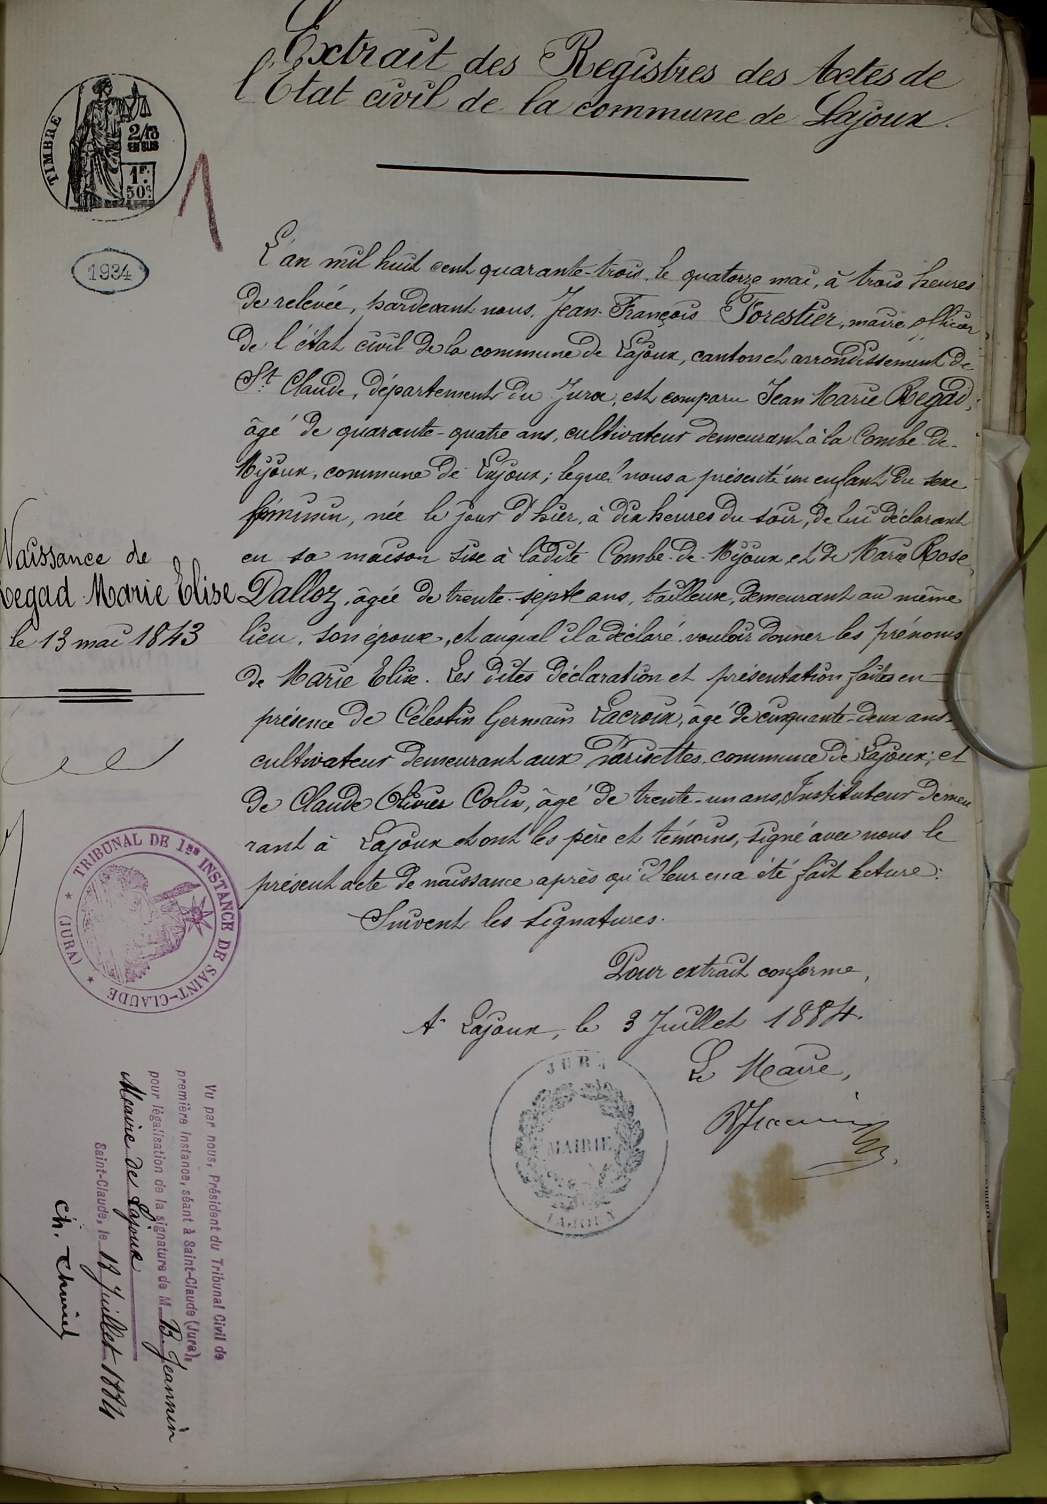 Extrait des Registres des Actes de
l'Etat civil de la commune de Lajoux.
TIMBRE
2/10
EN SUS
1F.
50c.
1
1934
L'an mil huit cent quarante-trois, le quatorze mai, à trois heures
de relevée, pardevant nous, Jean-François Forestier, maire, officier
de l'état civil de la commune de Lajoux, canton et arrondissement de
St. Claude, département du Jura, est comparu Jean Marie Regad,
âgé de quarante-quatre ans, cultivateur demeurant à la Combe-de-
Mijoux, commune de Lajoux; lequel nous a présenté un enfant du sexe
féminin, née le jour d'hier, à dix heures du soir, de lui déclarant
en sa maison sise à ladite Combe-de-Mijoux et de Marie Rose
Dalloz, âgée de trente-sept ans, tailleuse, demeurant au même
lieu, son épouse, et auquel il a déclaré vouloir donner les prénoms
de Marie Elise. Les dites déclaration et présentation faites en
présence de Célestin Germain Lacroix, âgé de cinquante-deux ans
cultivateur demeurant aux Darisettes, commune de Lajoux; et
de Claude Olivier Colin, âgé de trente-un ans, Instituteur demeu
rant à Lajoux et ont les père et témoins, signé avec nous le
présent acte de naissance après qu'il leur en a été fait lecture.
Suivent les signatures.
Pour extrait conforme,
A Lajoux, le 3 Juillet 1884.
Le Maire,
BJeannin
JURA
MAIRIE
LAJOUX
Naissance de
Regad Marie Elise
le 13 mai 1843
TRIBUNAL DE 1ère INSTANCE DE SAINT-CLAUDE
(JURA)
Vu par nous, Président du Tribunal Civil de
première Instance, séant à Saint-Claude (Jura),
pour légalisation de la signature de M. B. Jeannin
Maire de Lajoux
Saint-Claude, le 12 Juillet 1884
Ch.